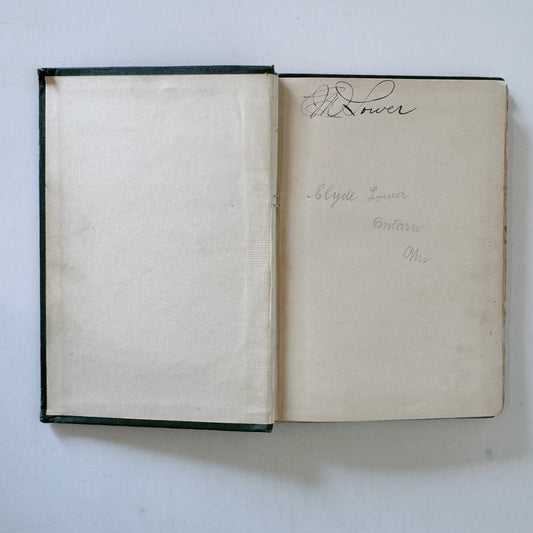 M Lower
Clyde Lower
Ontario
Wis